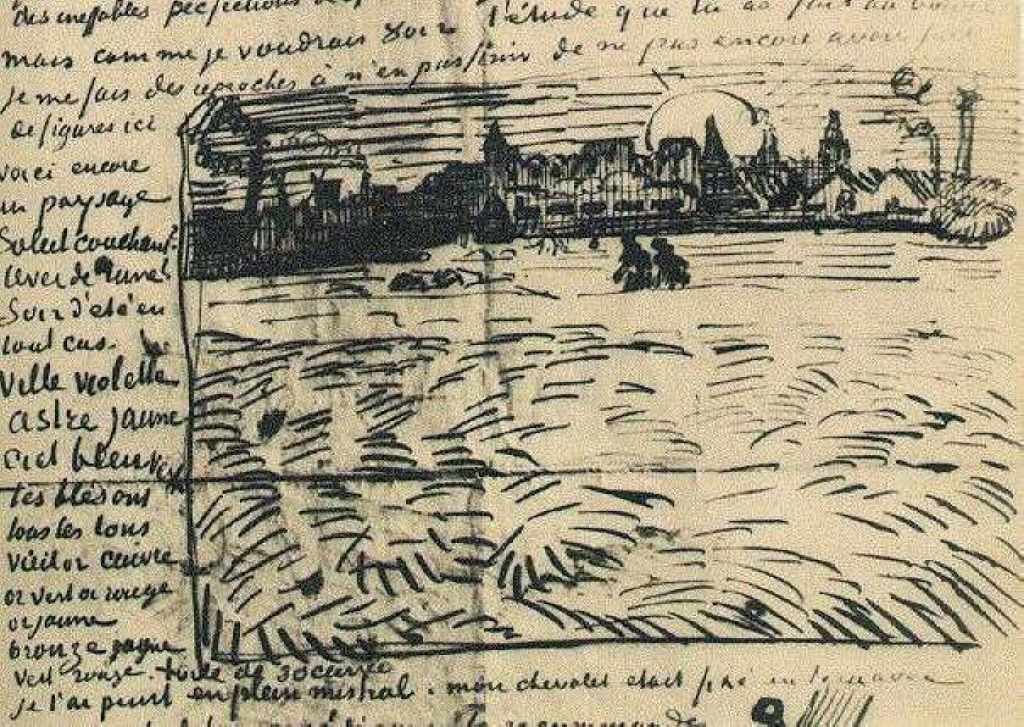 des ineffables perfections
mais comme je voudrais voir l'étude que tu as fait au
je me fais des reproches à n'en pas finir de ne pas encore avoir fait
de figures ici
voici encore
un paysage
Soleil couchant?
lever de lune?
Soir d'été en
tout cas.
Ville violette
astre jaune
ciel bleu vert
les blés ont
tous les tons
vieil or cuivre
or vert or rouge
or jaune
bronze jaune
vert rouge. toile de 30 carrée
je l'ai peint en plein mistral. mon chevalet était fixé en terre avec